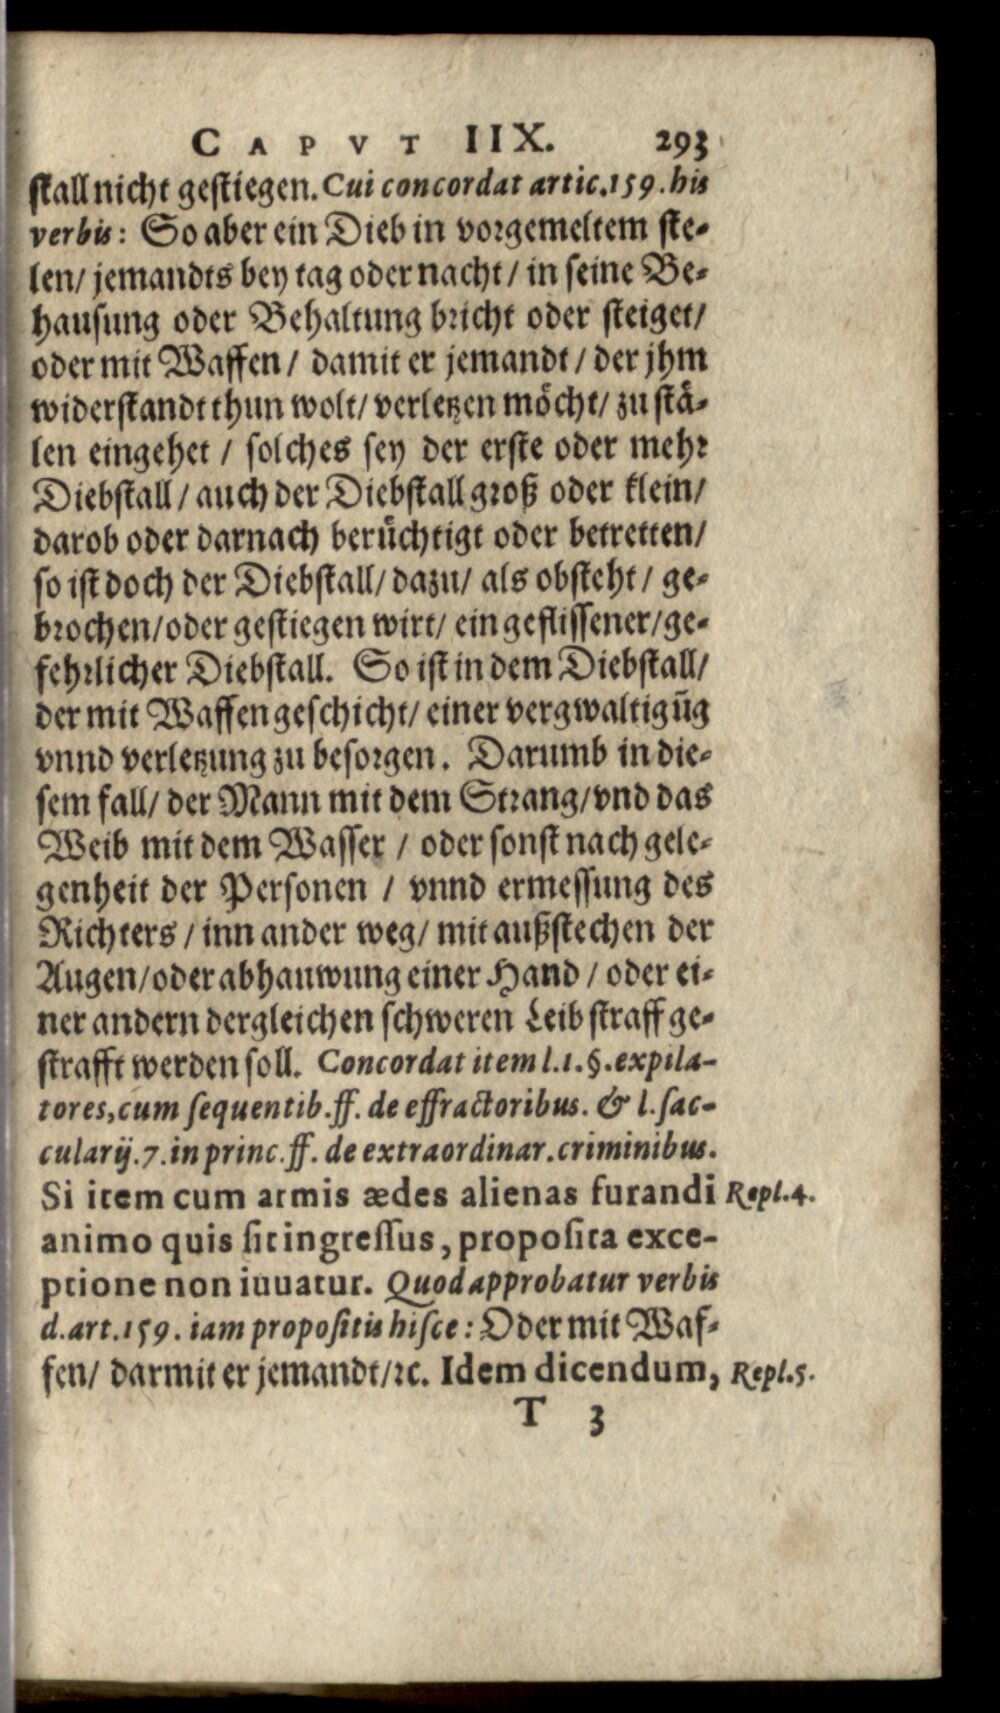 CAPVT IIX. 293
stall nicht gestiegen. Cui concordat artic. 159. his
verbis: So aber ein Dieb in vorgemeltem ste-
len/ jemandts bey tag oder nacht/ in seine Be-
hausung oder Behaltung bricht oder steiget/
oder mit Waffen/ damit er jemandt/ der jhm
widerstandt thun wolt/ verletzen möcht/ zu stä-
len eingehet/ solches sey der erste oder mehr
Diebstall/ auch der Diebstall groß oder klein/
darob oder darnach berüchtigt oder betretten/
so ist doch der Diebstall/ dazu/ als obsteht/ ge-
brochen/ oder gestiegen wirt/ ein geflissener/ ge-
fehrlicher Diebstall. So ist in dem Diebstall/
der mit Waffen geschicht/ einer vergwaltigũg
vnnd verletzung zu besorgen. Darumb in die-
sem fall/ der Mann mit dem Strang/ vnd das
Weib mit dem Wasser/ oder sonst nach gele-
genheit der Personen/ vnnd ermessung des
Richters/ inn ander weg/ mit außstechen der
Augen/ oder abhauwung einer Hand/ oder ei-
ner andern dergleichen schweren Leibstraff ge-
strafft werden soll. Concordat item l. 1. §. expila-
tores, cum sequentib. ff. de effractoribus. & l. sac-
cularij. 7. in princ. ff. de extraordinar. criminibus.
Si item cum armis ædes alienas furandi Repl. 4.
animo quis sit ingressus, proposita exce-
ptione non iuuatur. Quod approbatur verbis
d. art. 159. iam propositis hisce: Oder mit Waf-
fen/ darmit er jemandt/ ꝛc. Idem dicendum, Repl. 5.
T 3